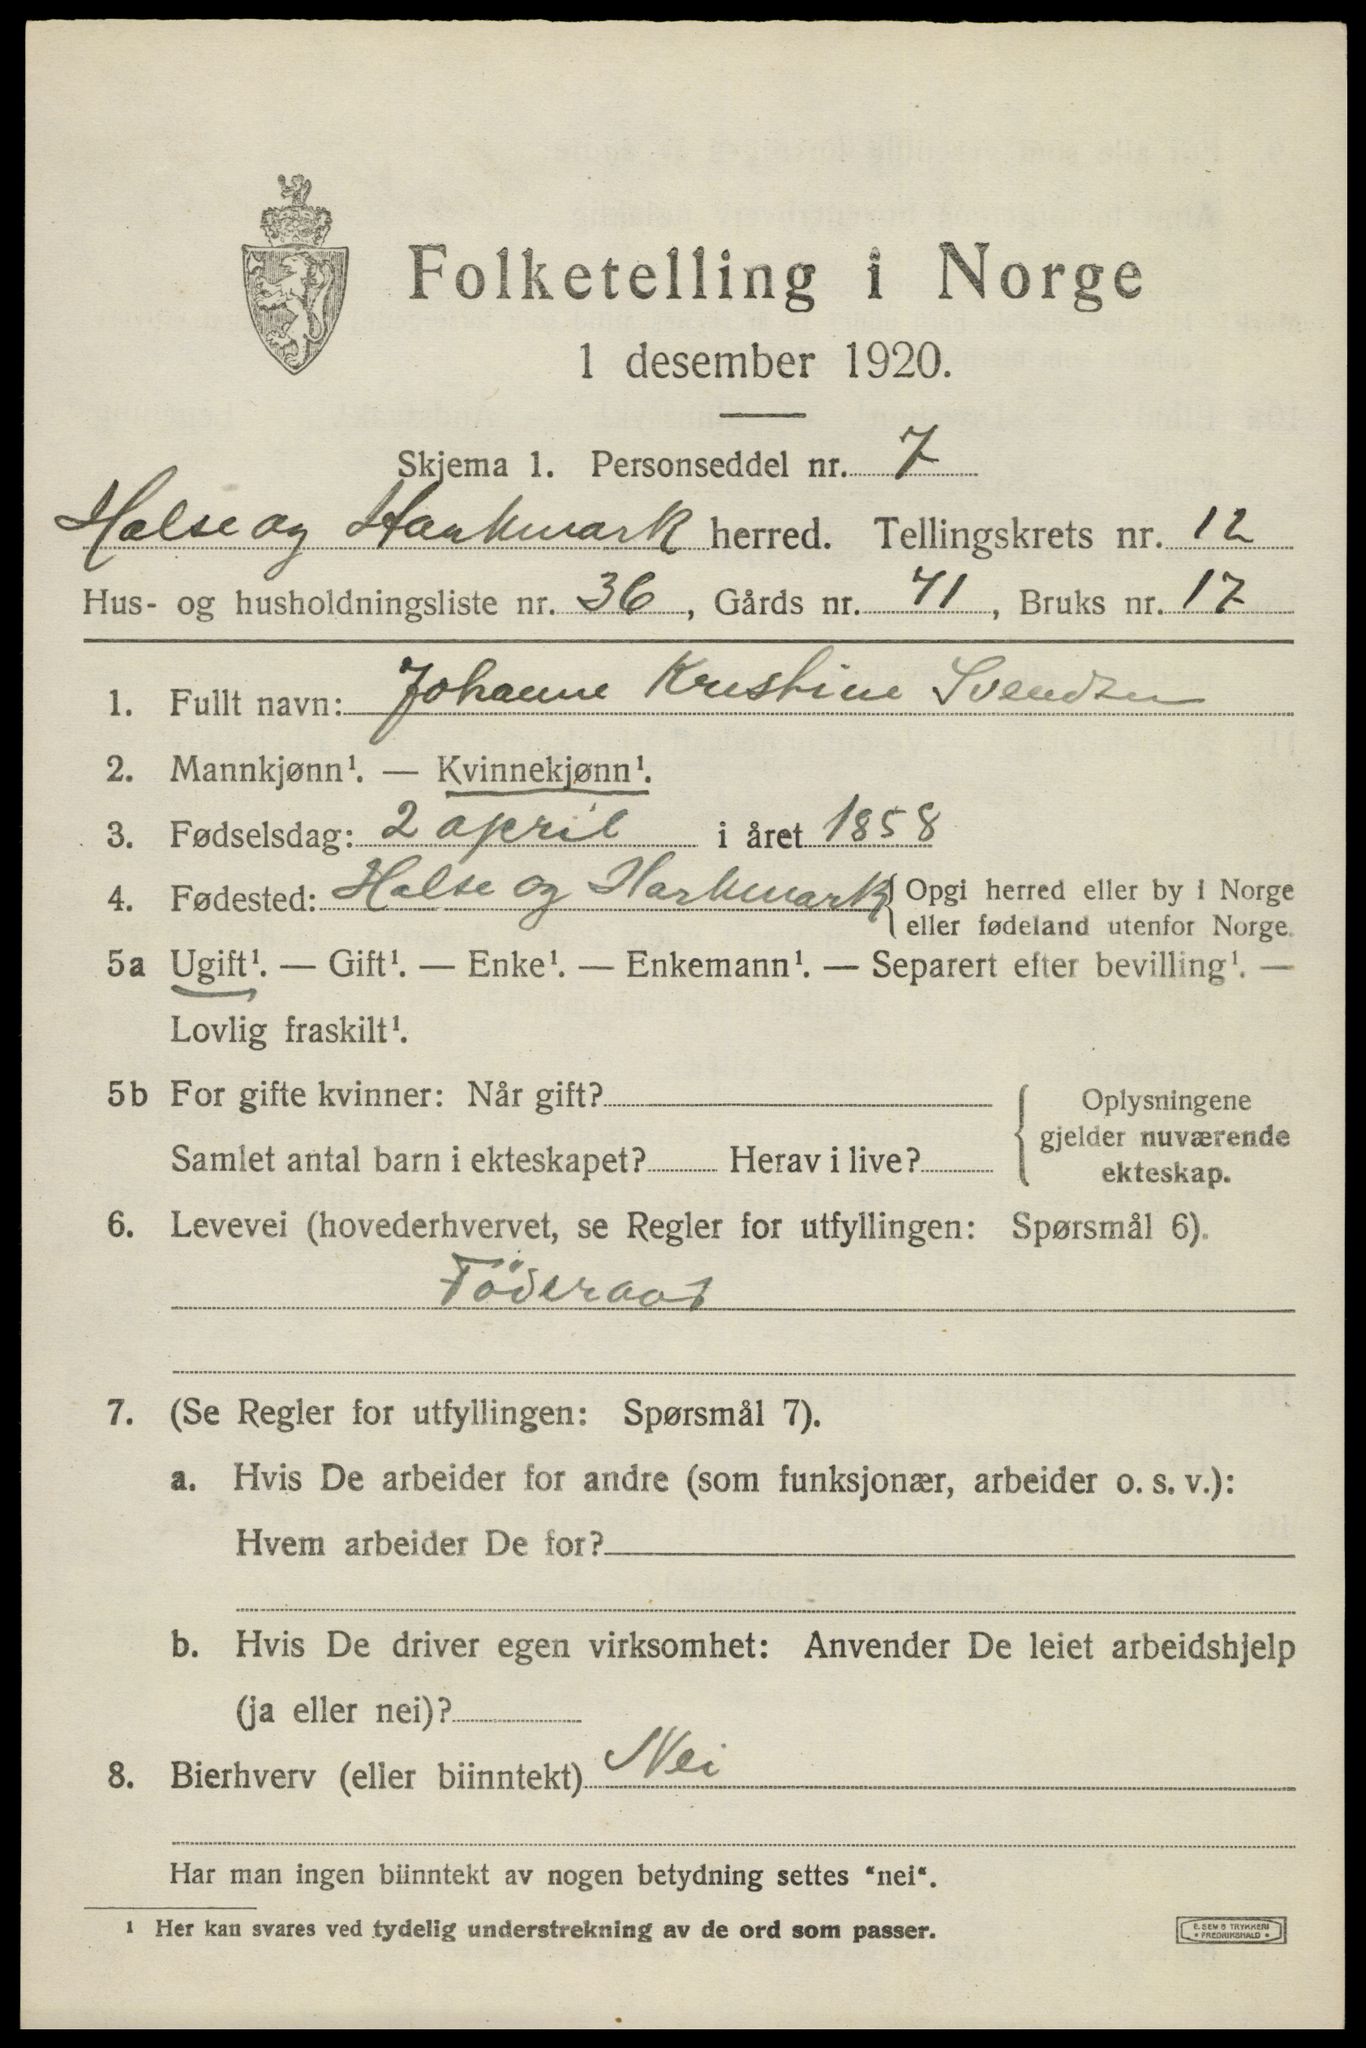 Folketelling i Norge
1 desember 1920.
Skjema 1. Personseddel nr. 7
Halse og Harkmark herred. Tellingskrets nr. 12
Hus- og husholdningsliste nr. 36, Gårds nr. 71, Bruks nr. 17
1. Fullt navn: Johanne Kristine Svendsen
2. Mannkjønn¹. — Kvinnekjønn¹.
3. Fødselsdag: 2 april i året 1858
4. Fødested: Halse og Harkmark { Opgi herred eller by i Norge
eller fødeland utenfor Norge.
5a Ugift¹. — Gift¹. — Enke¹. — Enkemann¹. — Separert efter bevilling¹. —
Lovlig fraskilt¹.
5b For gifte kvinner: Når gift?
Samlet antal barn i ekteskapet? Herav i live?
{ Oplysningene
gjelder nuværende
ekteskap.
6. Levevei (hovederhvervet, se Regler for utfyllingen: Spørsmål 6).
Föderaad
7. (Se Regler for utfyllingen: Spørsmål 7).
a. Hvis De arbeider for andre (som funksjonær, arbeider o. s. v.):
Hvem arbeider De for?
b. Hvis De driver egen virksomhet: Anvender De leiet arbeidshjelp
(ja eller nei)?
8. Bierhverv (eller biinntekt) Nei
Har man ingen biinntekt av nogen betydning settes "nei".
¹ Her kan svares ved tydelig understrekning av de ord som passer.
E. SEM'S TRYKKERI
* FREDRIKSHALD *